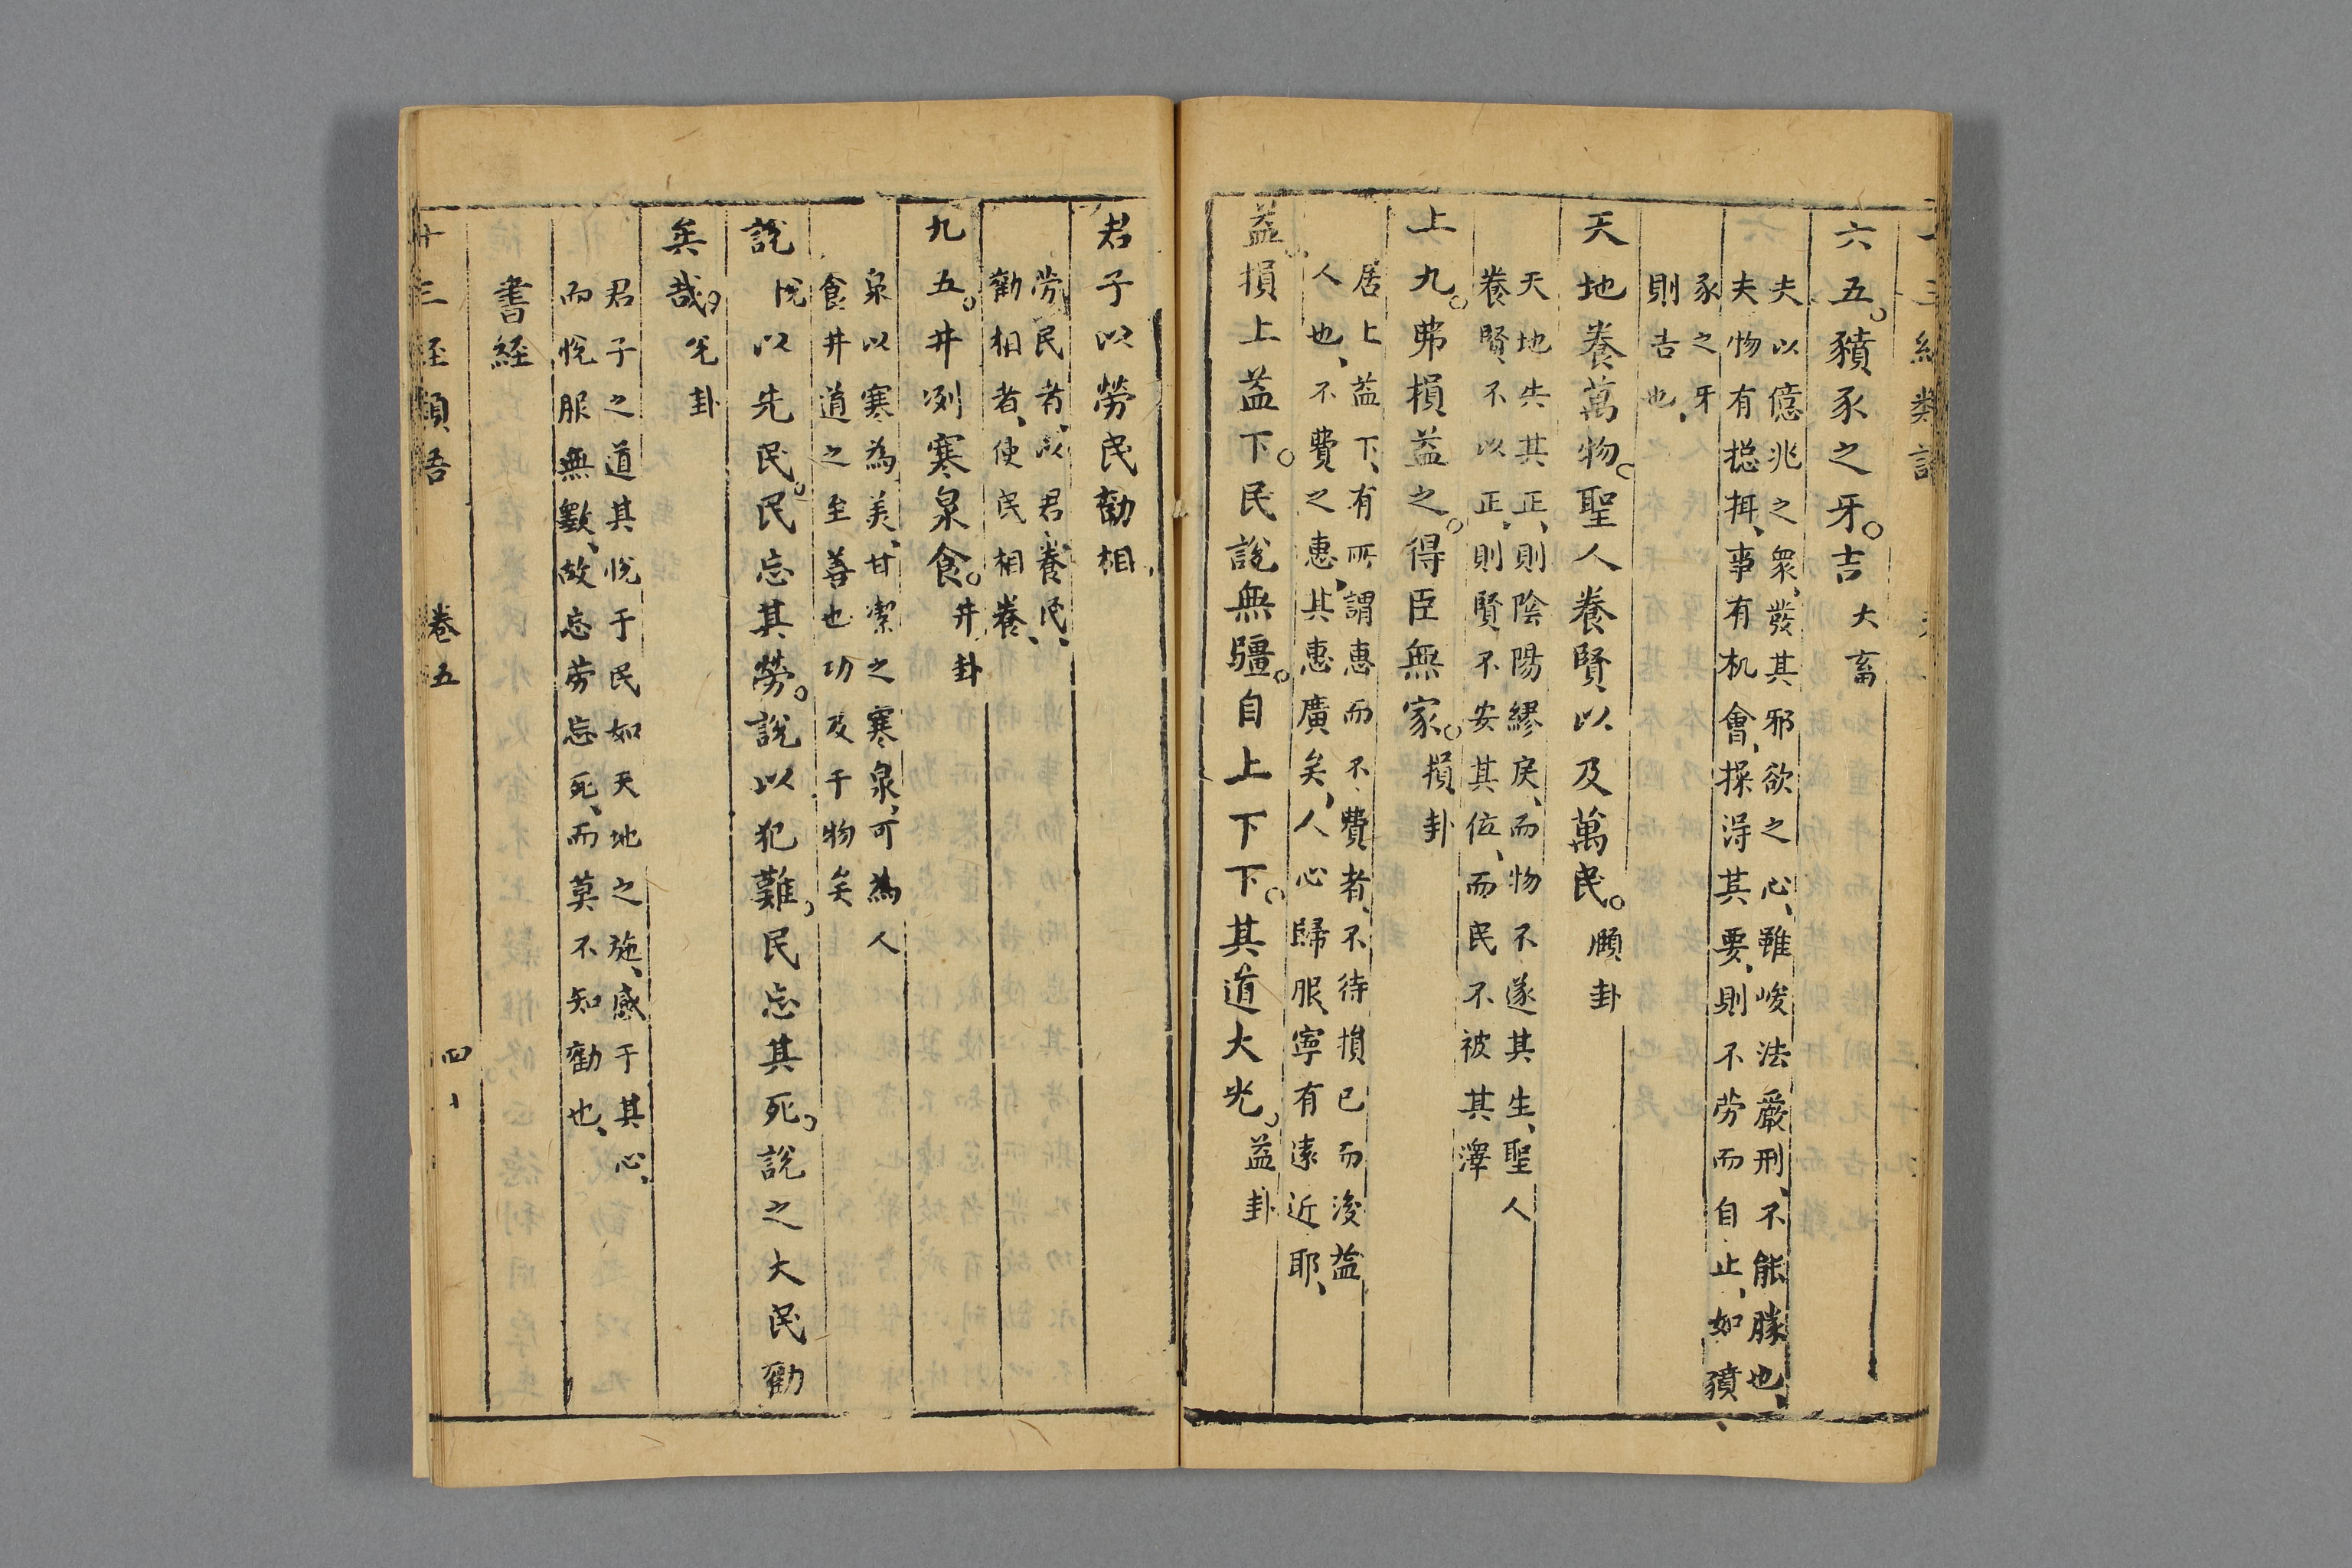 六五。豶豕之牙。吉大畜
夫以億兆之衆、發其邪欲之心、雖峻法嚴刑、不能勝也、
夫物有捴挕、事有机會、操淂其要、則不劳而自止、如豶、
豕之牙
則吉也、
天地養萬物。聖人養賢以及萬民。頤卦
天地失其正、則陰陽繆戾、而物不遂其生、聖人
養賢、不以正、則賢不安其位、而民不被其澤
上九。弗損益之。得臣無家。損卦
居上益下、有所謂惠而不費者、不待損已而後益
人也、不費之惠、其惠廣矣、人心歸服、寧有遠近耶、
益。損上益下。民說無疆。自上下下。其道大光。益卦
君子以勞民勸相、
勞民者、以君養民、
勸相者、使民相養、
九五。井冽寒泉食。井卦
泉以寒為美、甘潔之寒泉、可為人
食井道之至善也功及于物矣
說悅以先民。民忘其勞。說以犯難。民忘其死。說之大民勸
矣哉。兊卦
君子之道其悅于民如天地之施、感于其心、
而悅服無斁、故忘劳忘死、而莫不知勸也、
書経
十三經類語 卷五 四十